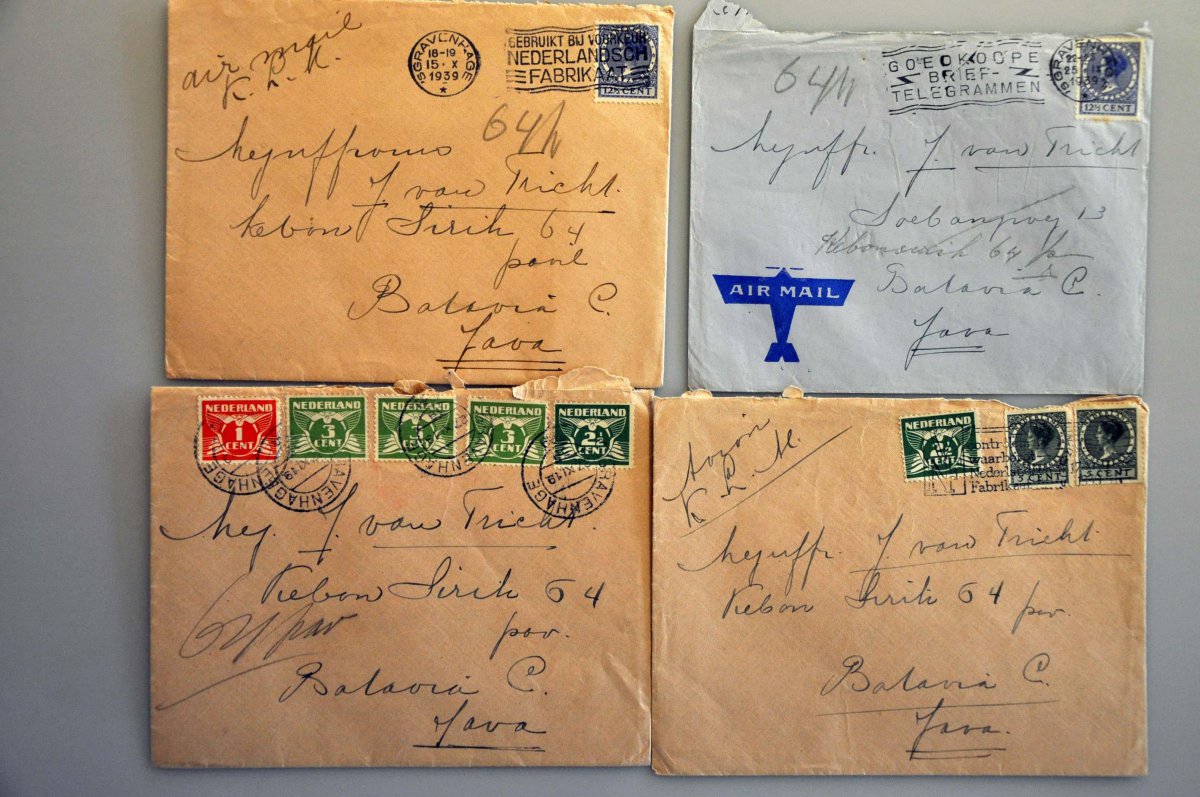 air mail
K. L. M.
'SGRAVENHAGE
18-19
15·X
1939
GEBRUIKT BIJ VOORKEUR
NEDERLANDSCH
FABRIKAAT
12½ CENT
64/h
Mejuffrouw
J. van Tricht.
Kebon Sirih 64
pavil
Batavia C.
Java
GOEDKOOPE
BRIEF-
TELEGRAMMEN
'SGRAVENHAGE
1939
12½ CENT
64/h
Mejuffr. J. van Tricht
Soebangweg 13
Kebonsirih 64
AIR MAIL
Batavia C.
Java
NEDERLAND
1
CENT
NEDERLAND
3
CENT
NEDERLAND
3
CENT
NEDERLAND
3
CENT
NEDERLAND
2½
CENT
GRAVENHAGE
Mej. J. van Tricht.
Kebon Sirih 64
pav.
64 pav
Batavia C.
Java
K. L. M.
2½
CENT
5 CENT
5 CENT
Mejuffr. J. van Tricht.
Kebon Sirih 64 pav.
Batavia C.
Java.